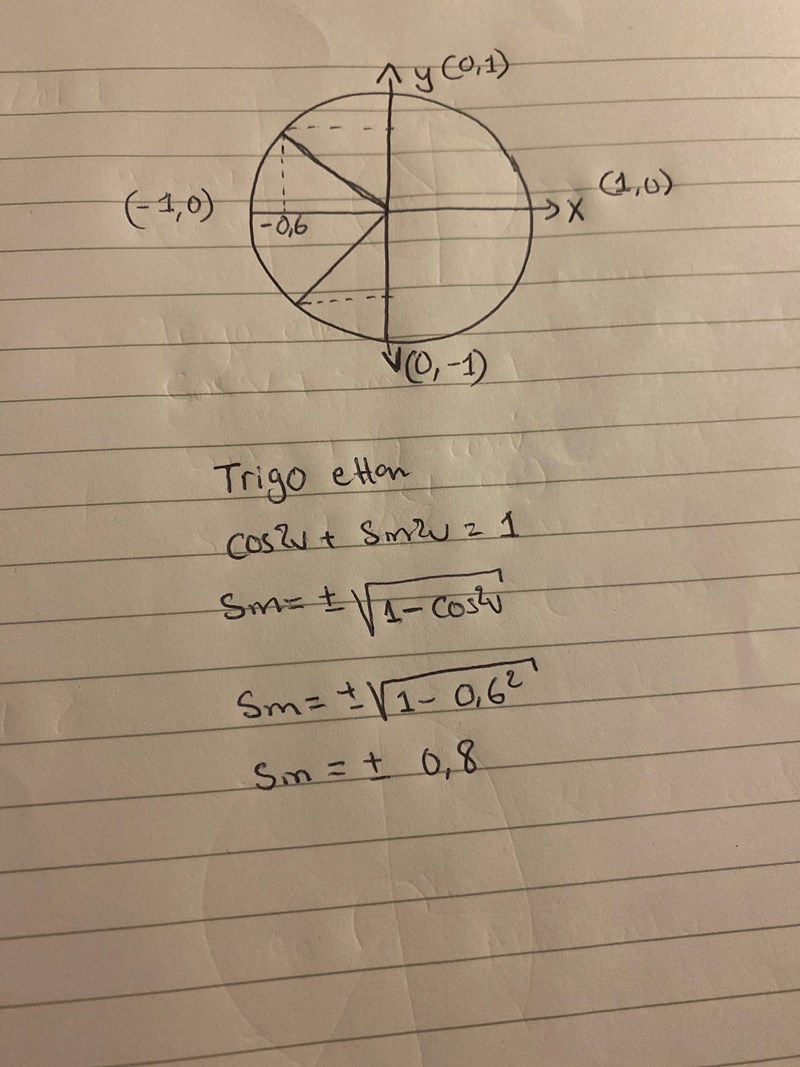 y (0,1)
(-1,0)
(1,0)
x
-0,6
(0,-1)
Trigo ettan
cos²v + sin²v = 1
sin = ± √1 - cos²v
sin = ± √1 - 0,6²
sin = ± 0,8